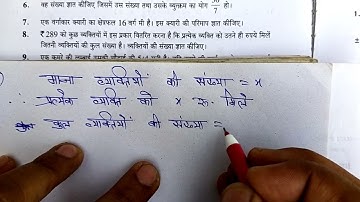 6. वह संख्या ज्ञात कीजिए जिसमें उस संख्या तथा उसके व्युत्क्रम का योग 50/7 हो।
7. एक वर्गाकार क्यारी का क्षेत्रफल 16 वर्ग मी है। इस क्यारी की परिमाप ज्ञात कीजिए।
8. ₹ 289 को कुछ व्यक्तियों में इस प्रकार वितरित करना है कि प्रत्येक व्यक्ति को उतने ही रुपये मिलें
जितनी व्यक्तियों की कुल संख्या है। व्यक्तियों की संख्या ज्ञात कीजिए।
माना व्यक्तियों की संख्या = x
∴ प्रत्येक व्यक्ति को x रू. मिले
कुल व्यक्तियों की संख्या =